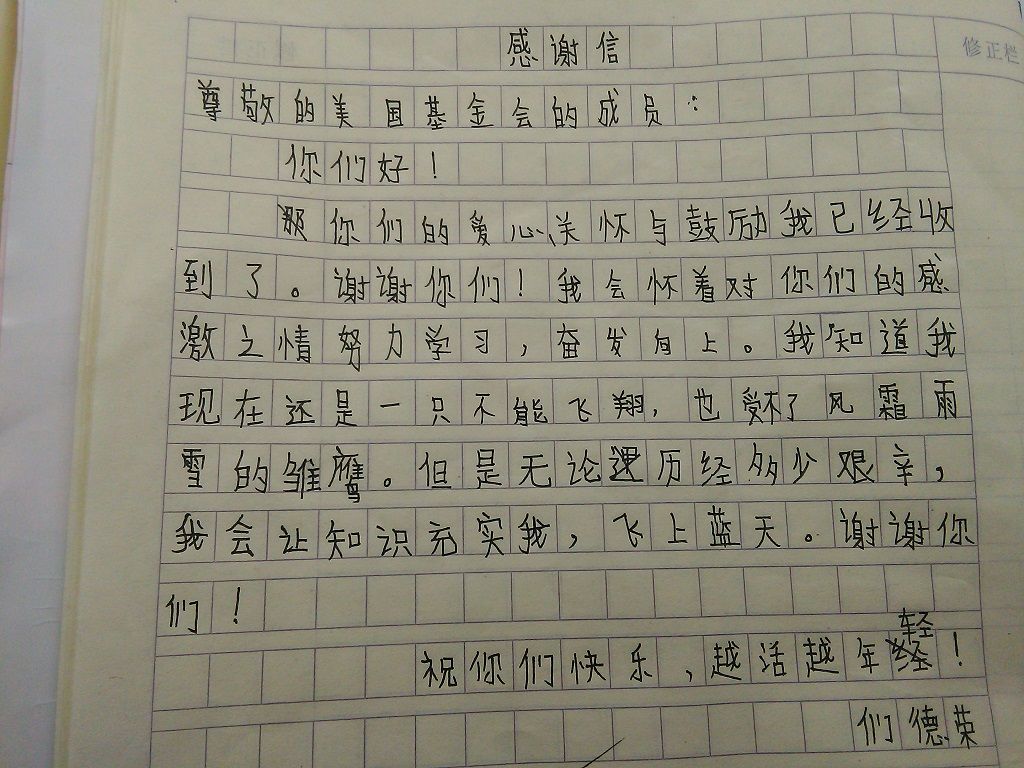 感谢信
修正栏
尊敬的美国基金会的成员：
你们好！
那你们的爱心、关怀与鼓励我已经收
到了。谢谢你们！我会怀着对你们的感
激之情努力学习，奋发向上。我知道我
现在还是一只不能飞翔，也受不了风霜雨
雪的雏鹰。但是无论遇历经多少艰辛，
我会让知识充实我，飞上蓝天。谢谢你
们！
祝你们快乐，越活越年轻！
们德荣